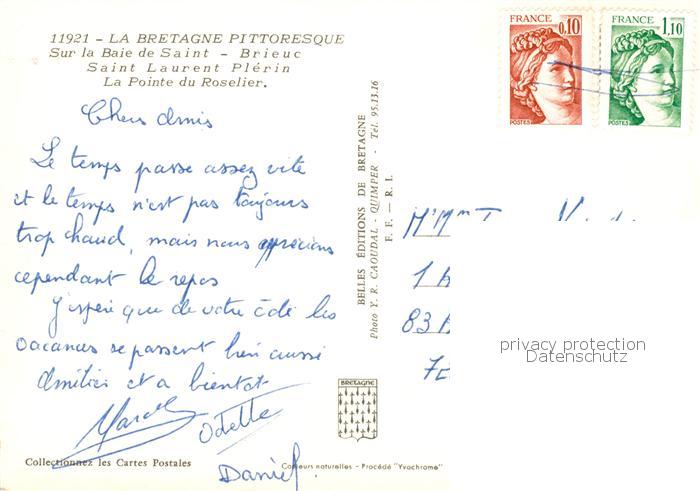 11921 - LA BRETAGNE PITTORESQUE
Sur la Baie de Saint - Brieuc
Saint Laurent Plérin
La Pointe du Roselier.
Chers Amis
Le temps passe assez vite
et le temps n'est pas toujours
trop chaud, mais nous apprécions
cependant le repos
J'espère que de votre côté les
vacances se passent bien aussi
Amitiés et a bientot
Marcel
Odette
Daniel
Collectionnez les Cartes Postales
Couleurs naturelles - Procédé "Yvachrome"
BELLES ÉDITIONS DE BRETAGNE
Photo Y. R. CAOUDAL - QUIMPER - Tél. 95.13.16
F. F. — R. I.
BRETAGNE
FRANCE
0,10
POSTES
FRANCE
1,10
POSTES
Mr Mme
83
privacy protection
Datenschutz